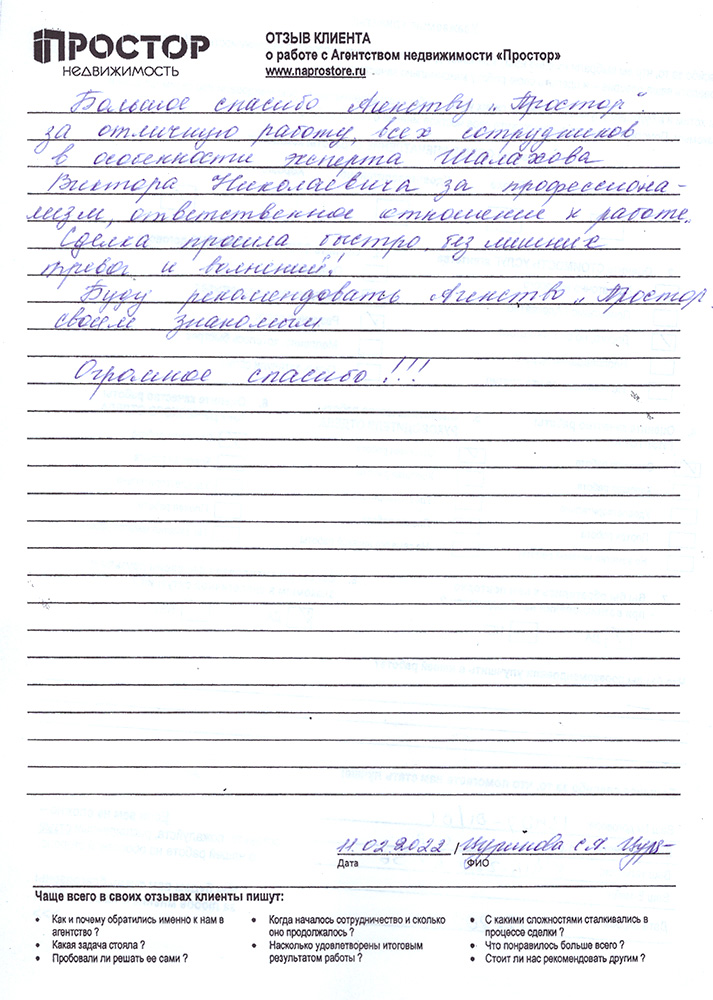 ПРОСТОР
НЕДВИЖИМОСТЬ
ОТЗЫВ КЛИЕНТА
о работе с Агентством недвижимости «Простор»
www.naprostore.ru
Большое спасибо Агенству „Простор"
за отличную работу, всех сотрудников
в особенности эксперта Шалахова
Виктора Николаевича за профессиона-
лизм, ответственное отношение к работе.
Сделка прошла быстро, без лишних
тревог и волнений!
Буду рекомендовать Агенство „Простор
своим знакомым
Огромное спасибо!!!
11.02.2022
Дата
ФИО
Чаще всего в своих отзывах клиенты пишут:
• Как и почему обратились именно к нам в
агентство ?
• Какая задача стояла ?
• Пробовали ли решать ее сами ?
• Когда началось сотрудничество и сколько
оно продолжалось ?
• Насколько удовлетворены итоговым
результатом работы ?
• С какими сложностями сталкивались в
процессе сделки ?
• Что понравилось больше всего ?
• Стоит ли нас рекомендовать другим ?